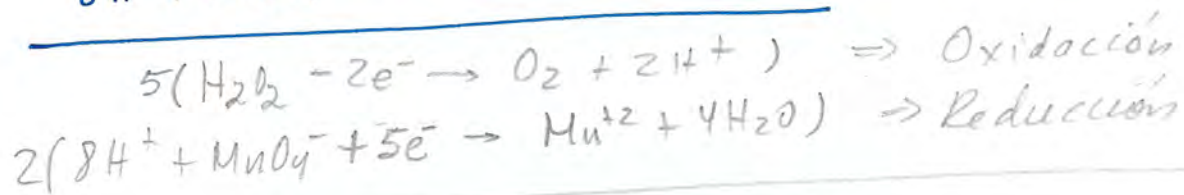 5(H₂O₂ - 2e⁻ → O₂ + 2H⁺) ⇒ Oxidación
2(8H⁺ + MnO₄⁻ + 5e⁻ → Mn⁺² + 4H₂O) ⇒ Reducción